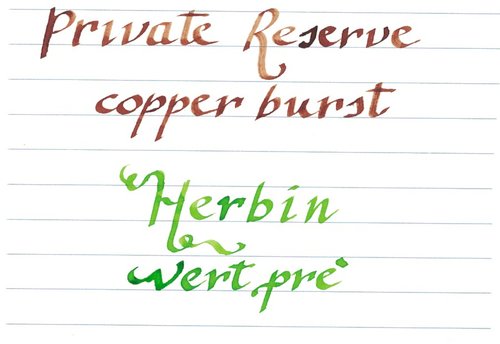 Private Reserve
copper burst
Herbin
vert pré